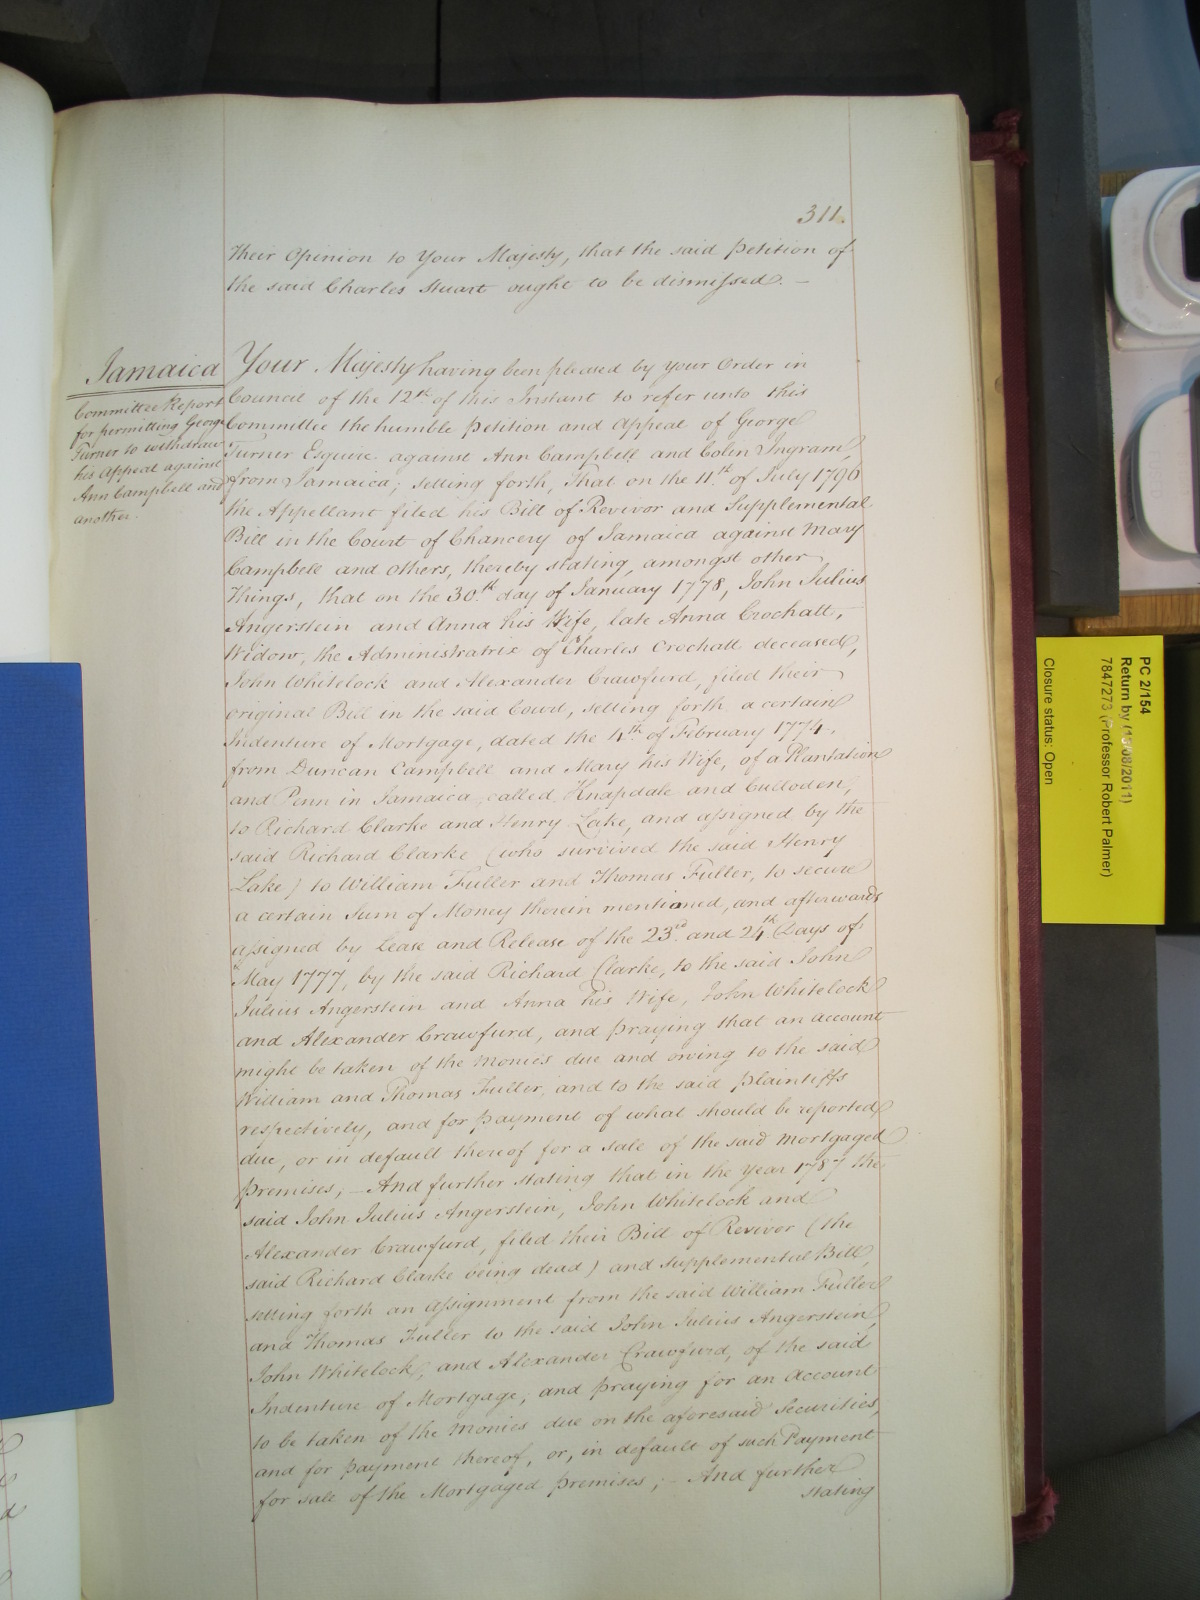 311.
their Opinion to Your Majesty, that the said Petition of
the said Charles Stuart ought to be dismissed. —
Jamaica
Committee Report
for permitting George
Turner to withdraw
his Appeal against
Ann Campbell and
another.
Your Majesty having been pleased by your Order in
Council of the 12th of this Instant to refer unto this
Committee the humble Petition and Appeal of George
Turner Esquire against Ann Campbell and Colin Ingram,
from Jamaica; setting forth, That on the 11th of July 1796
the Appellant filed his Bill of Revivor and Supplemental
Bill in the Court of Chancery of Jamaica against Mary
Campbell and others, thereby stating, amongst other
Things, that on the 30th day of January 1778, John Julius
Angerstein and Anna his Wife, late Anna Crochatt,
Widow, the Administratrix of Charles Crochatt deceased,
John Whitelock and Alexander Crawfurd, filed their
original Bill in the said Court, setting forth a certain
Indenture of Mortgage, dated the 4th of February 1774,
from Duncan Campbell and Mary his Wife, of a Plantation
and Penn in Jamaica, called Knapdale and Culloden,
to Richard Clarke and Henry Lake, and assigned by the
said Richard Clarke (who survived the said Henry
Lake) to William Fuller and Thomas Fuller, to secure
a certain Sum of Money therein mentioned, and afterwards
assigned by Lease and Release of the 23rd and 24th Days of
May 1777, by the said Richard Clarke, to the said John
Julius Angerstein and Anna his Wife, John Whitelock
and Alexander Crawfurd, and praying that an account
might be taken of the Monies due and owing to the said
William and Thomas Fuller, and to the said plaintiffs
respectively, and for payment of what should be reported
due, or in default thereof for a sale of the said mortgaged
premises; — And further stating that in the Year 1787 the
said John Julius Angerstein, John Whitelock and
Alexander Crawfurd, filed their Bill of Revivor (the
said Richard Clarke being dead) and supplemental Bill,
setting forth an Assignment from the said William Fuller
and Thomas Fuller to the said John Julius Angerstein,
John Whitelock, and Alexander Crawfurd, of the said
Indenture of Mortgage; and praying for an Account
to be taken of the Monies due on the aforesaid Securities,
and for payment thereof, or, in default of such Payment
for sale of the Mortgaged premises; — And further
stating
PC 2/154
Return by (13/08/2011)
7847273 (Professor Robert Palmer)
Closure status: Open